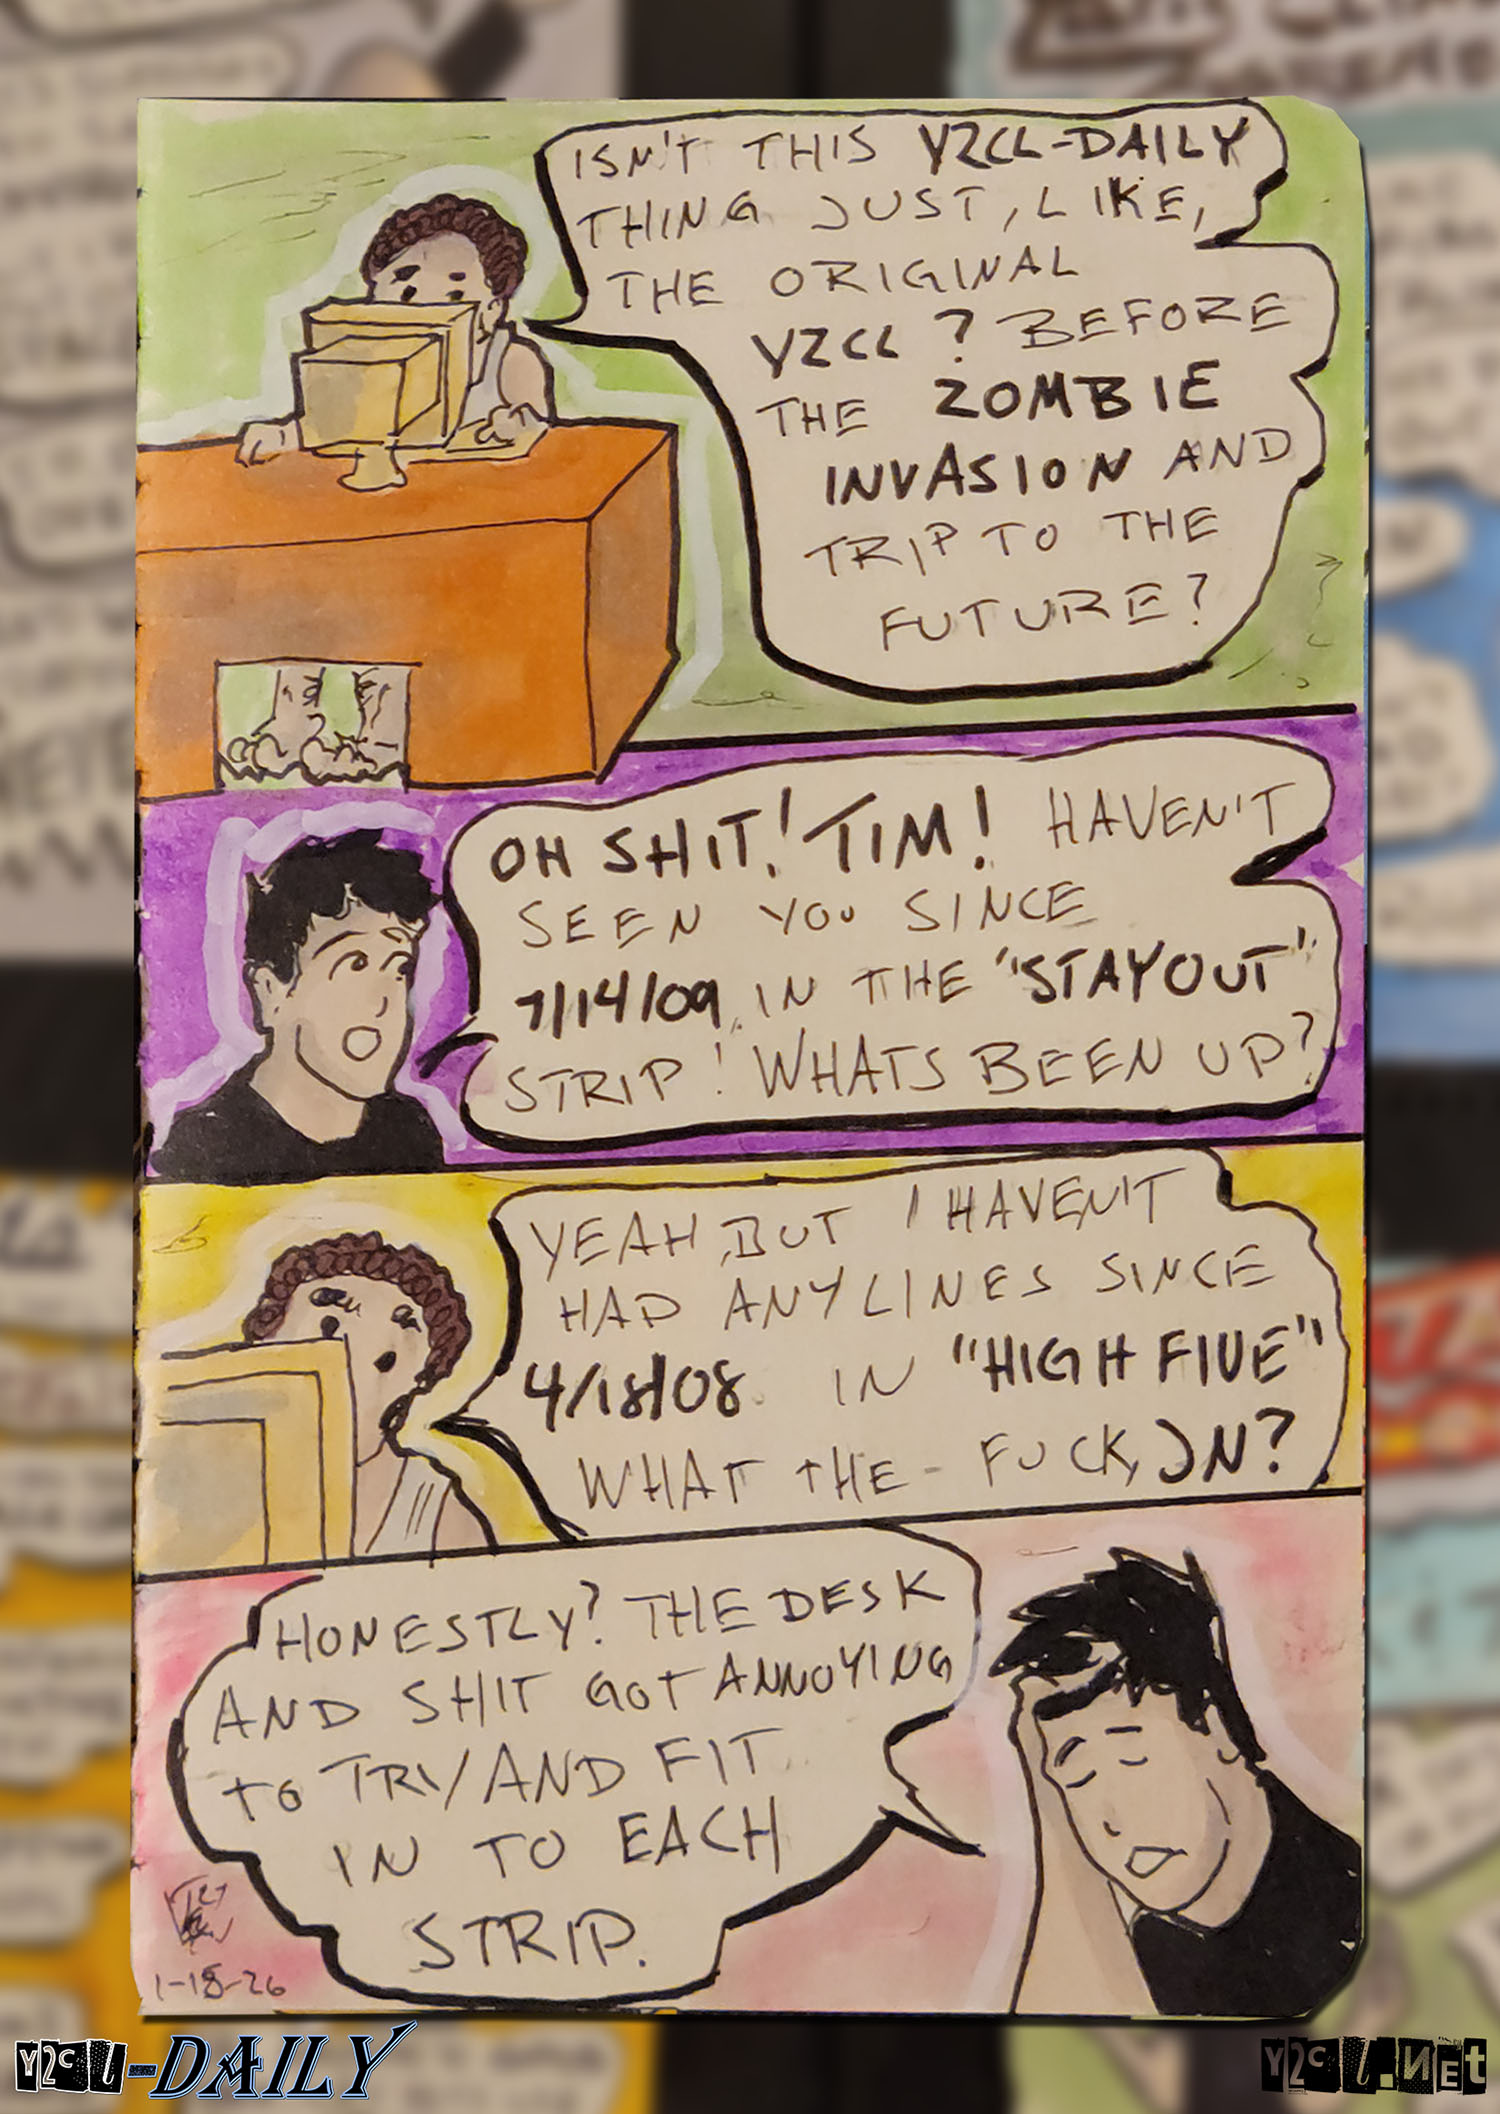 ISN'T THIS Y2CL-DAILY
THING JUST, LIKE,
THE ORIGINAL
Y2CL? BEFORE
THE ZOMBIE
INVASION AND
TRIP TO THE
FUTURE?
OH SHIT! TIM! HAVEN'T
SEEN YOU SINCE
7/14/09 IN THE "STAY OUT"
STRIP! WHATS BEEN UP?
YEAH, BUT I HAVEN'T
HAD ANY LINES SINCE
4/18/08 IN "HIGH FIVE"
WHAT THE - FUCK, JN?
HONESTLY? THE DESK
AND SHIT GOT ANNOYING
TO TRY AND FIT
IN TO EACH
STRIP.
1-18-26
Y2CL-DAILY
Y2CL.NEt